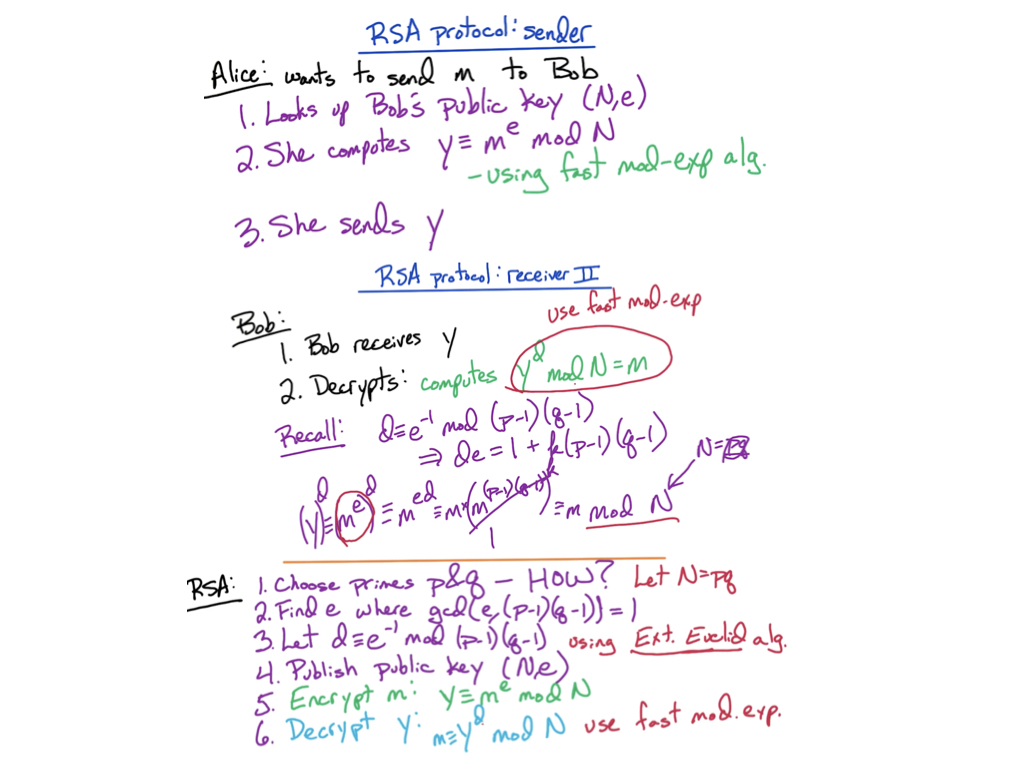 RSA protocol: sender
Alice: wants to send m to Bob
1. Looks up Bob's public key (N,e)
2. She computes y ≡ m^e mod N
- using fast mod-exp alg.
3. She sends y
RSA protocol: receiver II
use fast mod-exp
Bob:
1. Bob receives y
2. Decrypts: computes y^d mod N = m
Recall: d ≡ e^-1 mod (p-1)(q-1)
⇒ de = 1 + k(p-1)(q-1)
N=pq
(y)^d ≡ (m^e)^d ≡ m^ed ≡ m × (m^(p-1)(q-1))^k ≡ m mod N
1
RSA: 1. Choose primes p&q - HOW? Let N=pq
2. Find e where gcd(e,(p-1)(q-1)) = 1
3. Let d ≡ e^-1 mod (p-1)(q-1) using Ext. Euclid alg.
4. Publish public key (N,e)
5. Encrypt m: y ≡ m^e mod N
6. Decrypt y: m ≡ y^d mod N use fast mod.exp.